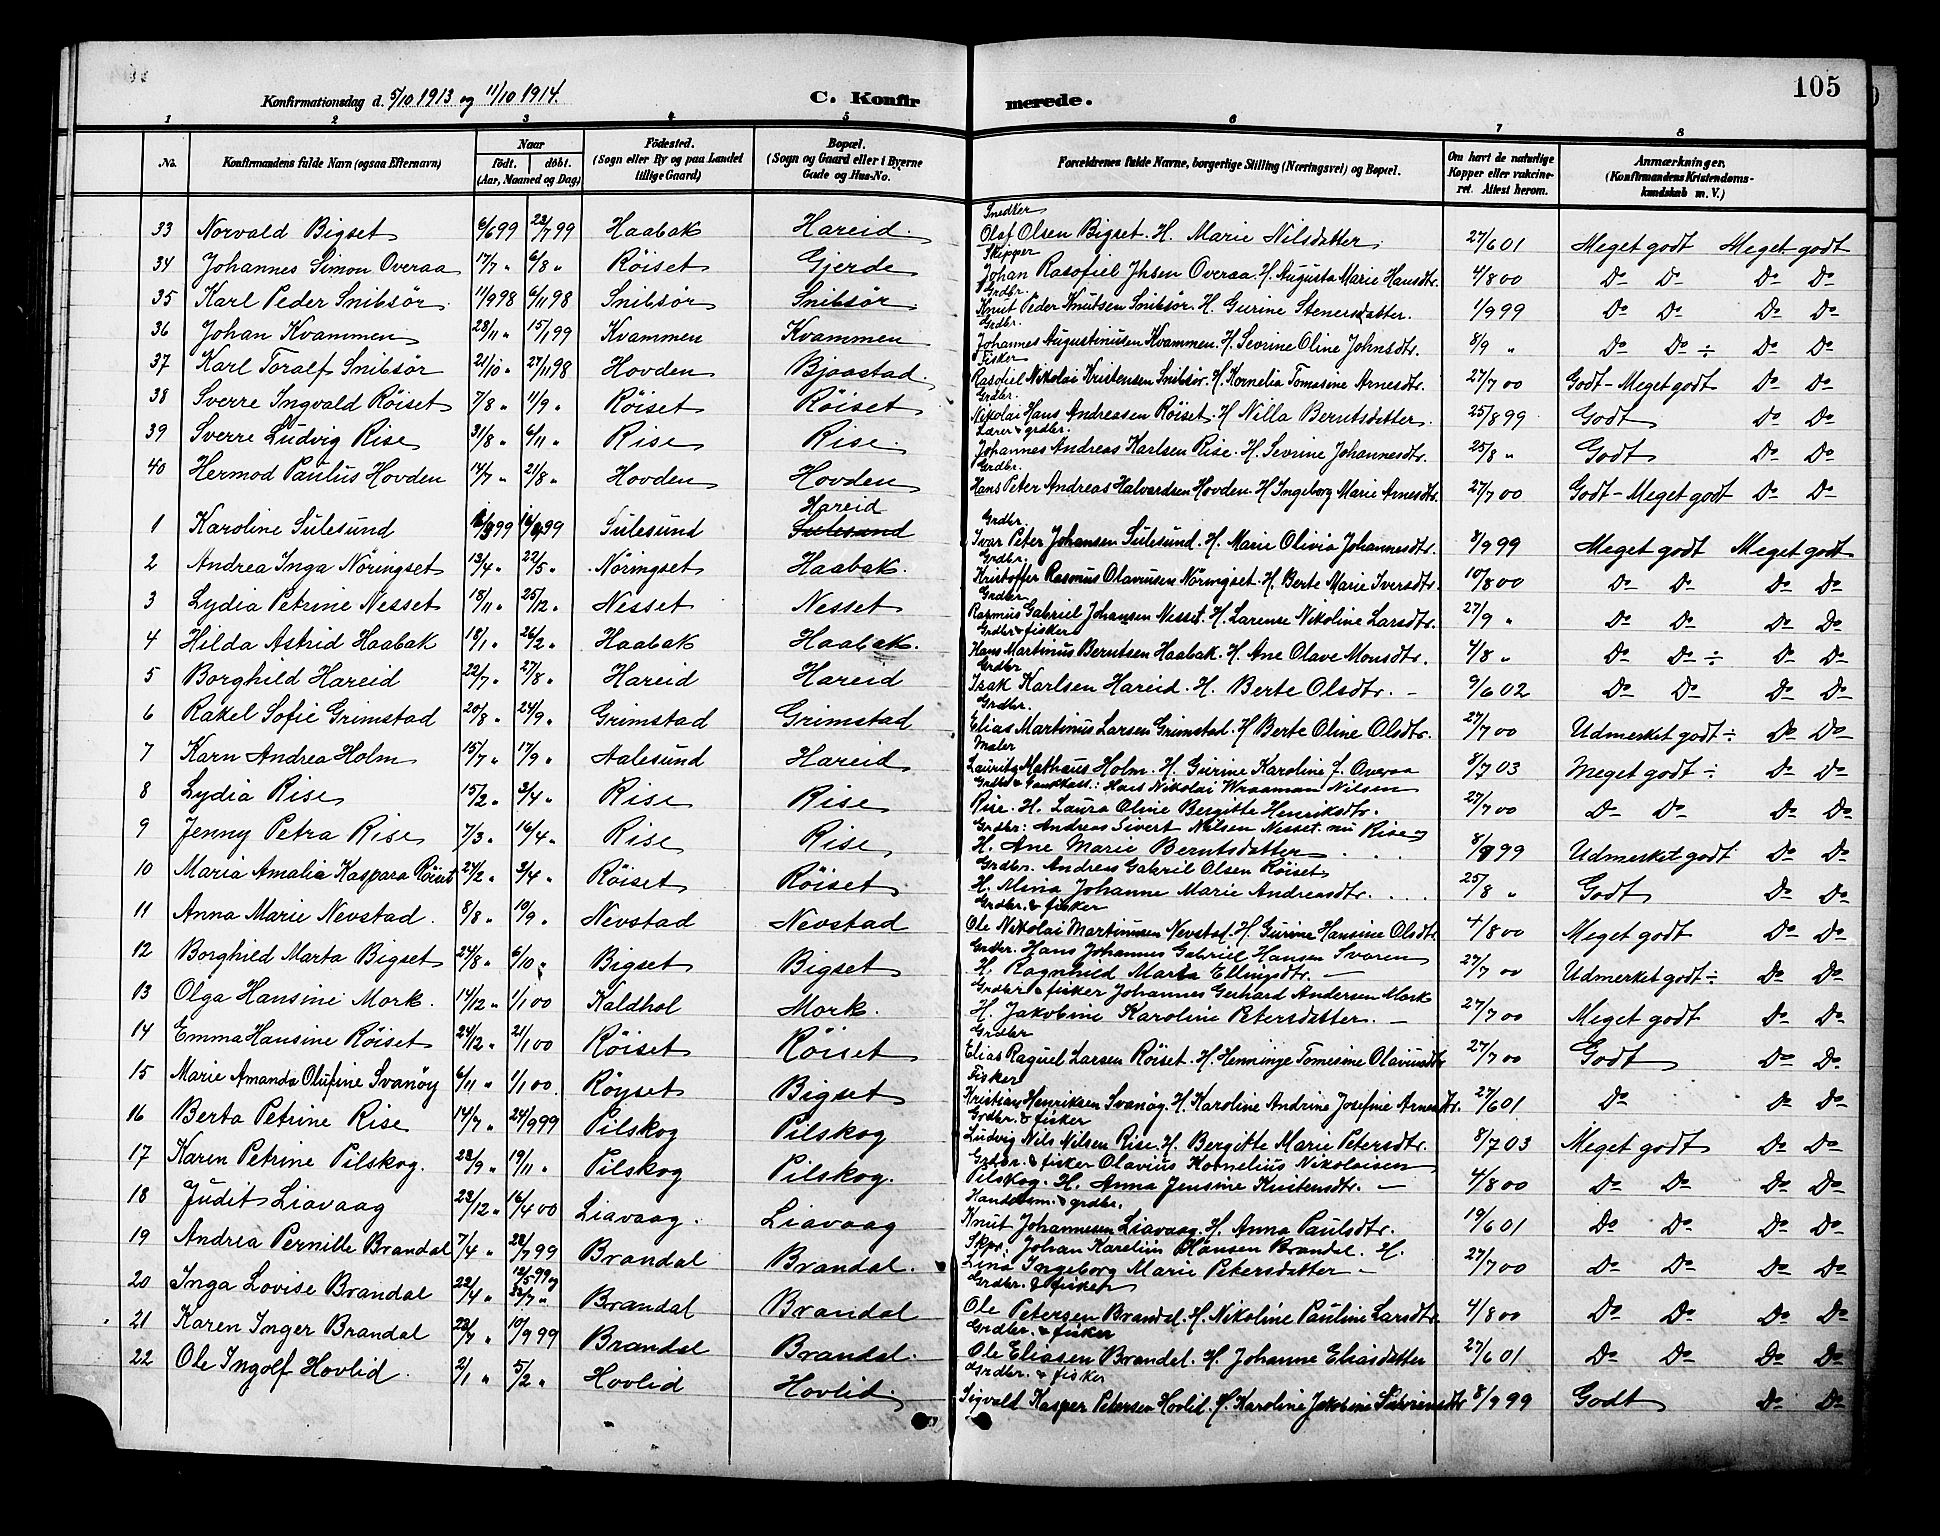 105
Konfirmationsdag d. 5/10 1913 og 11/10 1914. C. Konfirmerede.
1 2 3 4 5 6 7 8
No. Konfirmandens fulde Navn (ogsaa Efternavn) Naar födt. döbt. (Aar, Maaned og Dag) Födested. (Sogn eller By og paa Landet tillige Gaard) Bopæl. (Sogn og Gaard eller i Byerne Gade og Hus-No. Forældrenes fulde Navne, borgerlige Stilling (Næringsvei) og Bopæl. Om havt de naturlige Kopper eller vakcineret. Attest herom. Anmærkninger. (Konfirmandens Kristendomskundskab m. V.)
33 Norvald Bigset 6/6 99 23/7 99 Haabak Hareid Snedker Olaf Olsen Bigset. H. Marie Nilsdatter. 27/6 01 Meget godt Meget godt
34 Johannes Simon Overaa 17/7 " 6/8 " Röiset Gjerde Skipper Johan Rasofiel Jhsen Overaa. H. Augusta Marie Hansdtr. 4/8 00 Do Do Do Do
35 Karl Peder Snibsör 11/9 98 6/11 98 Snibsör Snibsör Grdbr. Knut Peder Knutsen Snibsör. H. Gurine Stenersdatter. 1/9 99 Do Do Do Do
36 Johan Kvammen 28/11 " 15/1 99 Kvammen Kvammen Grdbr. Johannes Augustinusen Kvammen. H. Sevrine Oline Johnsdtr. 8/9 " Do Do ÷ Do Do
37 Karl Toralf Snibsör 21/10 " 27/11 98 Hovden Bjaastad. Fisker Rasofiel Nikolai Kristensen Snibsör. H. Kornelia Tomasine Arnesdtr. 27/7 00 Godt - Meget godt Do Do
38 Sverre Ingvald Röiset 7/8 " 11/9 " Röiset Röiset Grdbr. Nikolai Hans Andreasen Röiset. H. Nilla Berntsdatter. 25/8 99 Godt Do Do
39 Sverre Ludvig Rise 31/8 " 6/11 " Rise Rise. Lærer & grdbr. Johannes Andreas Karlsen Rise. H. Sevrine Johannesdtr. 25/8 " Godt Do Do
40 Hermod Paulus Hovden 14/7 " 21/8 " Hovden Hovden Grdbr. Hans Peter Andreas Halvardsen Hovden. H. Ingeborg Marie Arnesdtr. 27/7 00 Godt - Meget godt Do Do
1 Karoline Sulesund Sulesund Hareid Sulesund Grdbr. Ivar Peter Johansen Sulesund. H. Marie Olivia Johannesdtr. 8/9 99 Meget godt Meget godt
2 Andrea Inga Nöringset 13/4 " 22/5 " Nöringset Haabak. Grdbr. Kristoffer Rasmus Olavusen Nöringset. H. Berte Marie Iversdtr. 10/8 00 Do Do Do Do
3 Lydia Petrine Nesset 18/11 " 25/12 " Nesset Nesset Grdbr Rasmus Gabriel Johansen Nesset. H. Larense Nikoline Larsdtr. 27/9 " Do Do Do Do
4 Hilda Astrid Haabak 18/1 " 26/2 " Haabak Haabak. Grdbr & fisker Hans Martinus Berntsen Haabak. H. Ane Olave Monsdtr. 4/8 " Do Do ÷ Do Do
5 Borghild Hareid 22/7 " 27/8 " Hareid Hareid Grdbr Isak Karlsen Hareid. H. Berte Olsdtr. 9/6 02 Do Do Do Do
6 Rakel Sofie Grimstad 20/8 " 24/9 " Grimstad Grimstad Grdbr. Elias Martinus Larsen Grimstad. H Berte Oline Olsdtr. 27/7 00 Udmerket godt ÷ Do Do
7 Karn Andrea Holm 15/7 " 17/9 " Aalesund Hareid Maler Lauritz Mathæus Holm. H. Gurine Karoline J. Overaa 8/7 03 Meget godt ÷ Do Do
8 Lydia Rise 15/2 " 3/4 " Rise Rise Grdbr & : Hans Nikolai Nilsen Rise. H. Laura Oline Bergitte Henriksdtr. 27/7 00 Do Do Do Do
9 Jenny Petra Rise 7/3 " 16/4 " Rise Rise Grdbr: Andreas Sivert Nilsen Nesset nu Rise H. Ane Marie Berntsdatter 8/9 99 Udmerket godt Do Do
10 Maria Amalia Kaspara Röiset 24/2 " 3/4 " Röiset Röiset Grdbr. Andreas Gabriel Olsen Röiset H. Alina Johanne Marie Andreasdtr. 25/8 " Godt Do Do
11 Anna Marie Nevstad. 8/8 " 10/9 " Nevstad Nevstad Grdbr. & fisker Ole Nikolai Martinusen Nevstad. H. Gurine Hansine Olsdtr 4/8 00 Meget godt Do Do
12 Borghild Marta Bigset 24/8 " 6/10 " Bigset Bigset Grdbr. Hans Johannes Gabriel Hansen Svoren H. Ragnhild Marta Ellingsdtr. 27/7 00 Udmerket godt ÷ Do Do
13 Olga Hansine Mork. 14/12 " 1/1 00 Kaldhol Mork. Grdbr & fisker Johannes Gerhard Andersen Mork H. Jakobine Karoline Petersdatter. 27/7 00 Meget godt Do Do
14 Emma Hansine Röiset 24/12 " 21/1 00 Röiset Röiset Grdbr Elias Raguel Larsen Röiset. H. Henninge Tomesine Olavusdtr 27/7 00 Godt Do Do
15 Marie Amanda Olufine Svanöy 6/11 " 1/1 00. Röyset Bigset Fisker Kristian Henriksen Svanöy. H. Karoline Andrine Josefine Arnesdtr. 27/6 01 Do Do Do
16 Berta Petrine Rise 14/7 " 24/9 99 Pilskog Pilskog Grdbr. & fisker Ludvig Nils Nilsen Rise. H. Bergitte Marie Petersdtr. 8/7 03 Meget godt Do Do
17 Karen Petrine Pilskog. 28/9 " 19/11 " Pilskog Pilskog. Grdbr. & fisker Olavius Kornelius Nikolaisen Pilskog. H. Anna Jensine Knutensdtr. 4/8 00 Do Do Do Do
18 Judit Liavaag 23/12 " 16/4 00 Liavaag. Liavaag Handelsm. & grdbr. Knut Johannesen Liavaag. H. Anna Paulsdtr. 19/6 01 Do Do Do Do
19 Andrea Pernille Brandal 7/4 " 28/7 99 Brandal Brandal. Skpr: Johan Karelius Hansen Brandal. H. Lina Ingeborg Marie Petersdatter 27/7 00 Do Do Do Do
20 Inga Lovise Brandal 22/4 " 12/5 99 og Brandal Brandal Grdbr. & fisker Ole Petersen Brandal. H. Nikoline Pauline Larsdtr. 4/8 00 Do Do Do Do
21 Karen Inger Brandal 22/7 " 10/9 99 Brandal Brandal. Grdbr. & fisker Ole Eliasen Brandal. H. Johanne Eliasdatter 27/6 01 Do Do Do Do
22 Ole Ingolf Hovlid. 2/1 " 5/2 " Hovlid Hovlid. Grdbr. & fisker Sigvald Kasper Petersen Hovlid. H. Karoline Jakobine 8/9 99 Godt Do Do